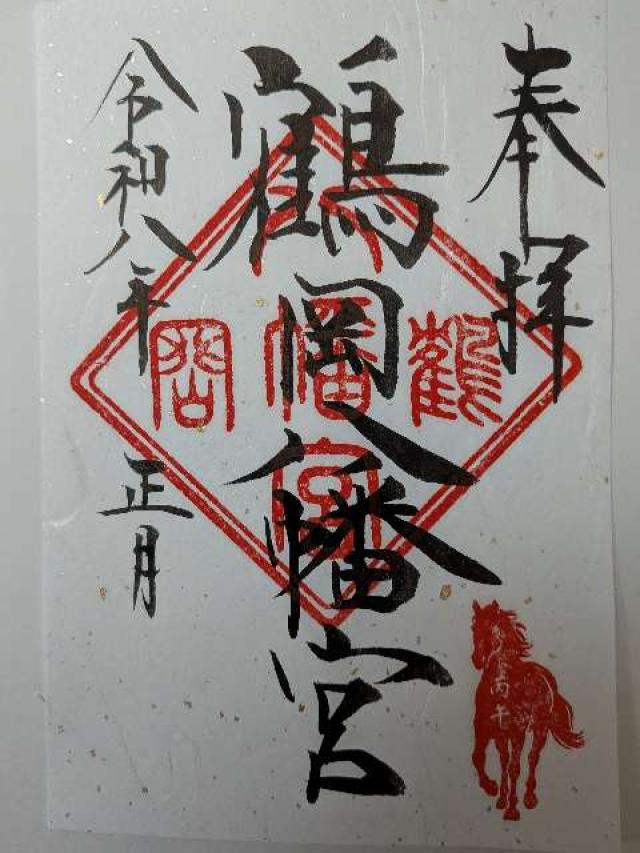 奉拝
鶴岡八幡宮
令和八年
正月
鶴岡
八幡宮
丙午